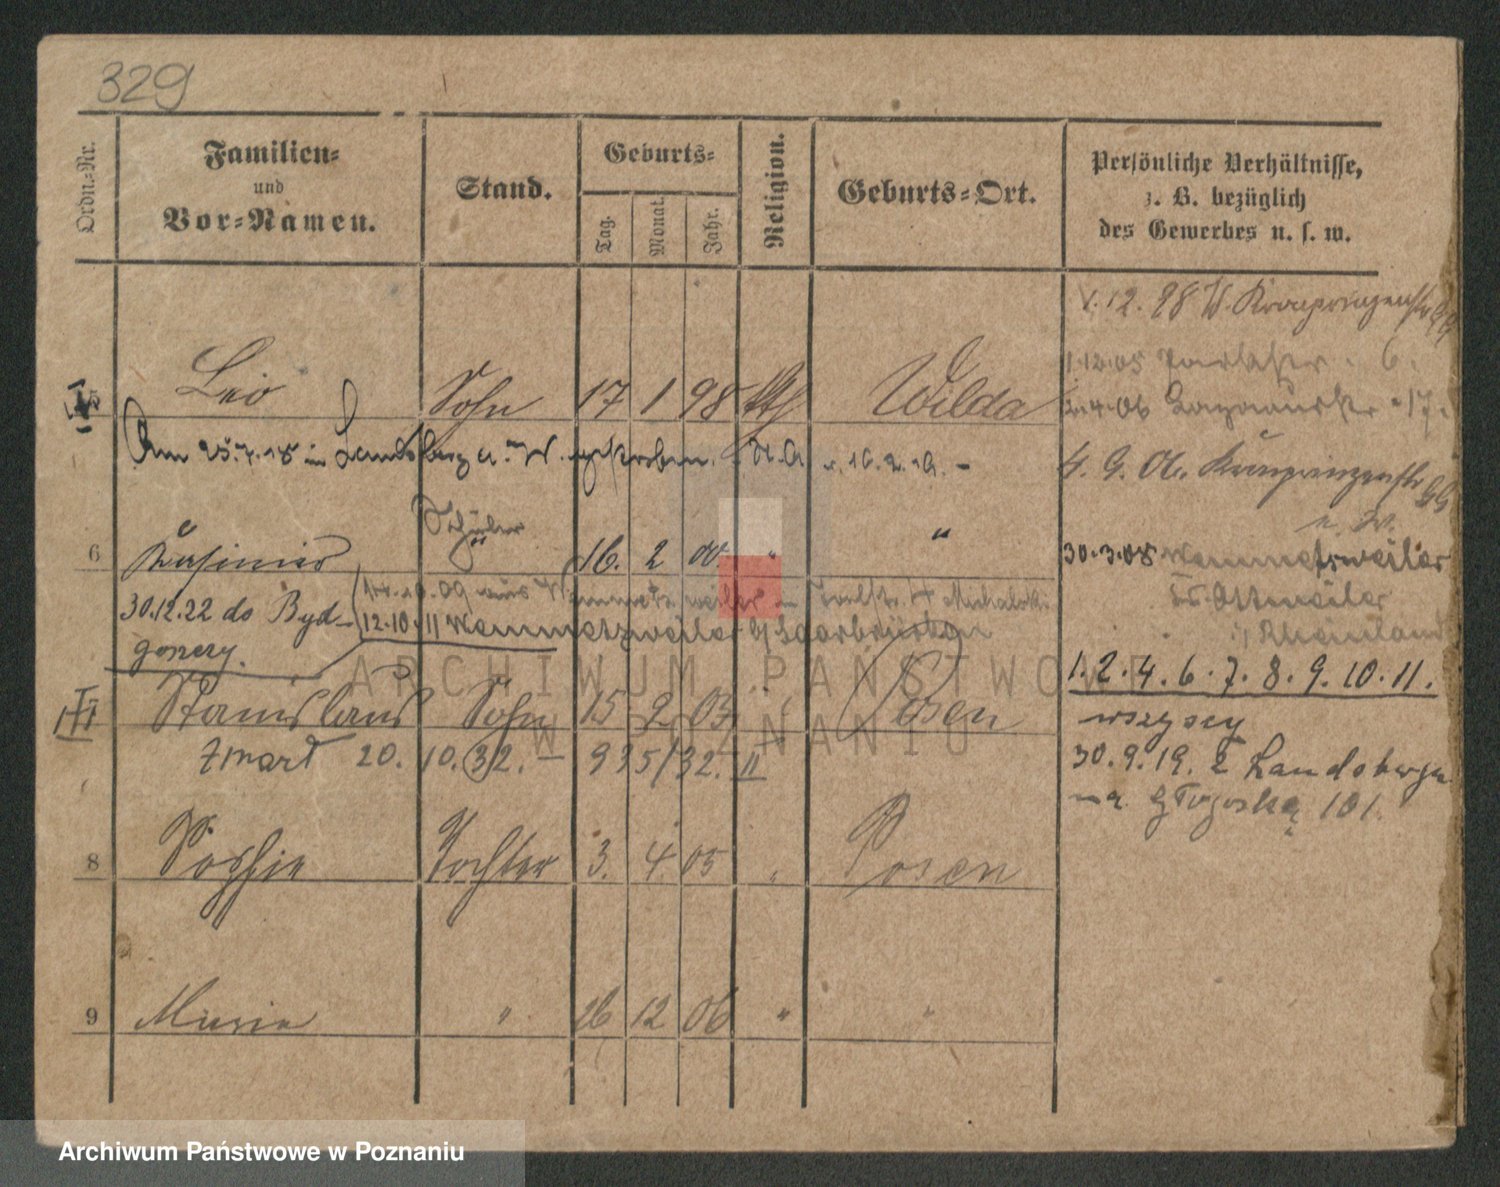 329
Ordn.-Nr.
Familien-
und
Vor-Namen.
Stand.
Geburts-
Tag.
Monat.
Jahr.
Religion.
Geburts-Ort.
Persönliche Verhältnisse,
z. B. bezüglich
des Gewerbes u. s. w.
1.12.98 W. Kronprinzenstr
1.12.05 Parkstr. 6.
Leo Sohn 17 1 98 Kth Wilda
2.4.06 17.
Am 25.7.18 in Landsberg a. W. gestorben. 16.2.19. -
4.9.06. Kronprinzenstr
Schüler
6 Kasimir " 16. 2 00. " "
30.3.08 Wemmetsweiler
14.10.09 aus Wemmetsweiler in
Kr. Ottweiler
30.12.22 do Byd-
12.10.11 Wemmetsweiler b/ Saarbrücken
i/ Rheinland
goszczy.
1.2.4.6.7.8.9.10.11.
ARCHIWUM PAŃSTWOWE
Stanislaus Sohn 15 2 03 " Posen
wszyscy
W POZNANIU
zmarł 20.10.32. - 935/32. II
30.9.19. z Landsberga
na Głogoską 101.
8 Sophie Tochter 3. 4. 05 " Posen
9 Marie " 26 12 06 " "
Archiwum Państwowe w Poznaniu